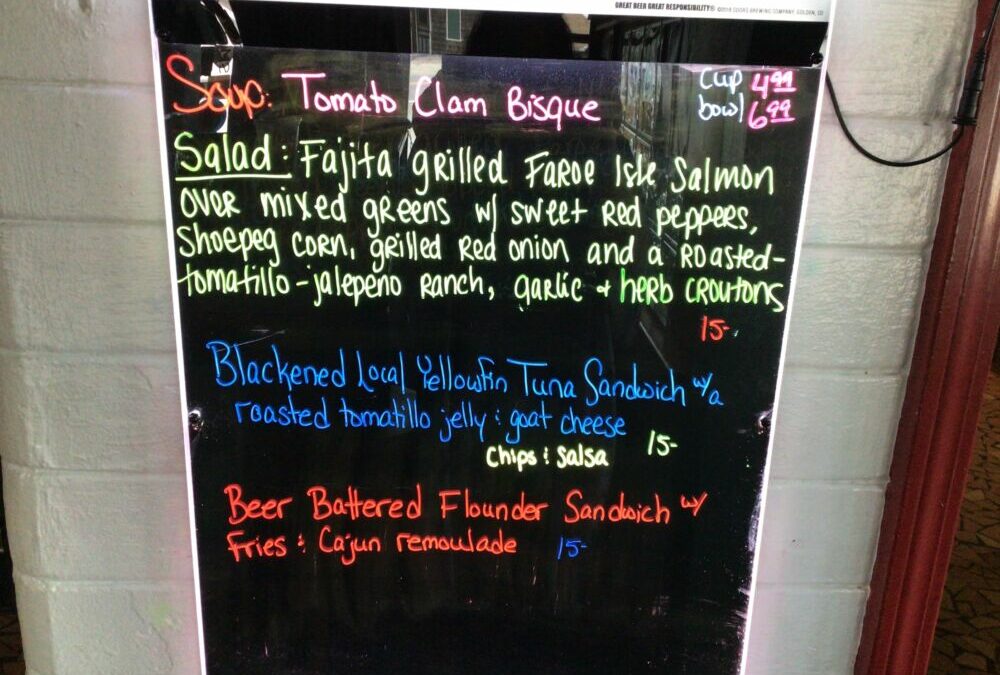 GREAT BEER GREAT RESPONSIBILITY® ©2018 COORS BREWING COMPANY, GOLDEN, CO
Soup: Tomato Clam Bisque
cup 4.99
bowl 6.99
Salad: Fajita grilled Faroe Isle Salmon
over mixed greens w/ sweet red peppers,
Shoepeg corn, grilled red onion and a roasted-
tomatillo-jalepeño ranch, garlic + herb croutons
15-
Blackened Local Yellowfin Tuna Sandwich w/a
roasted tomatillo jelly & goat cheese
chips & salsa 15-
Beer Battered Flounder Sandwich w/
fries & Cajun remoulade 15-